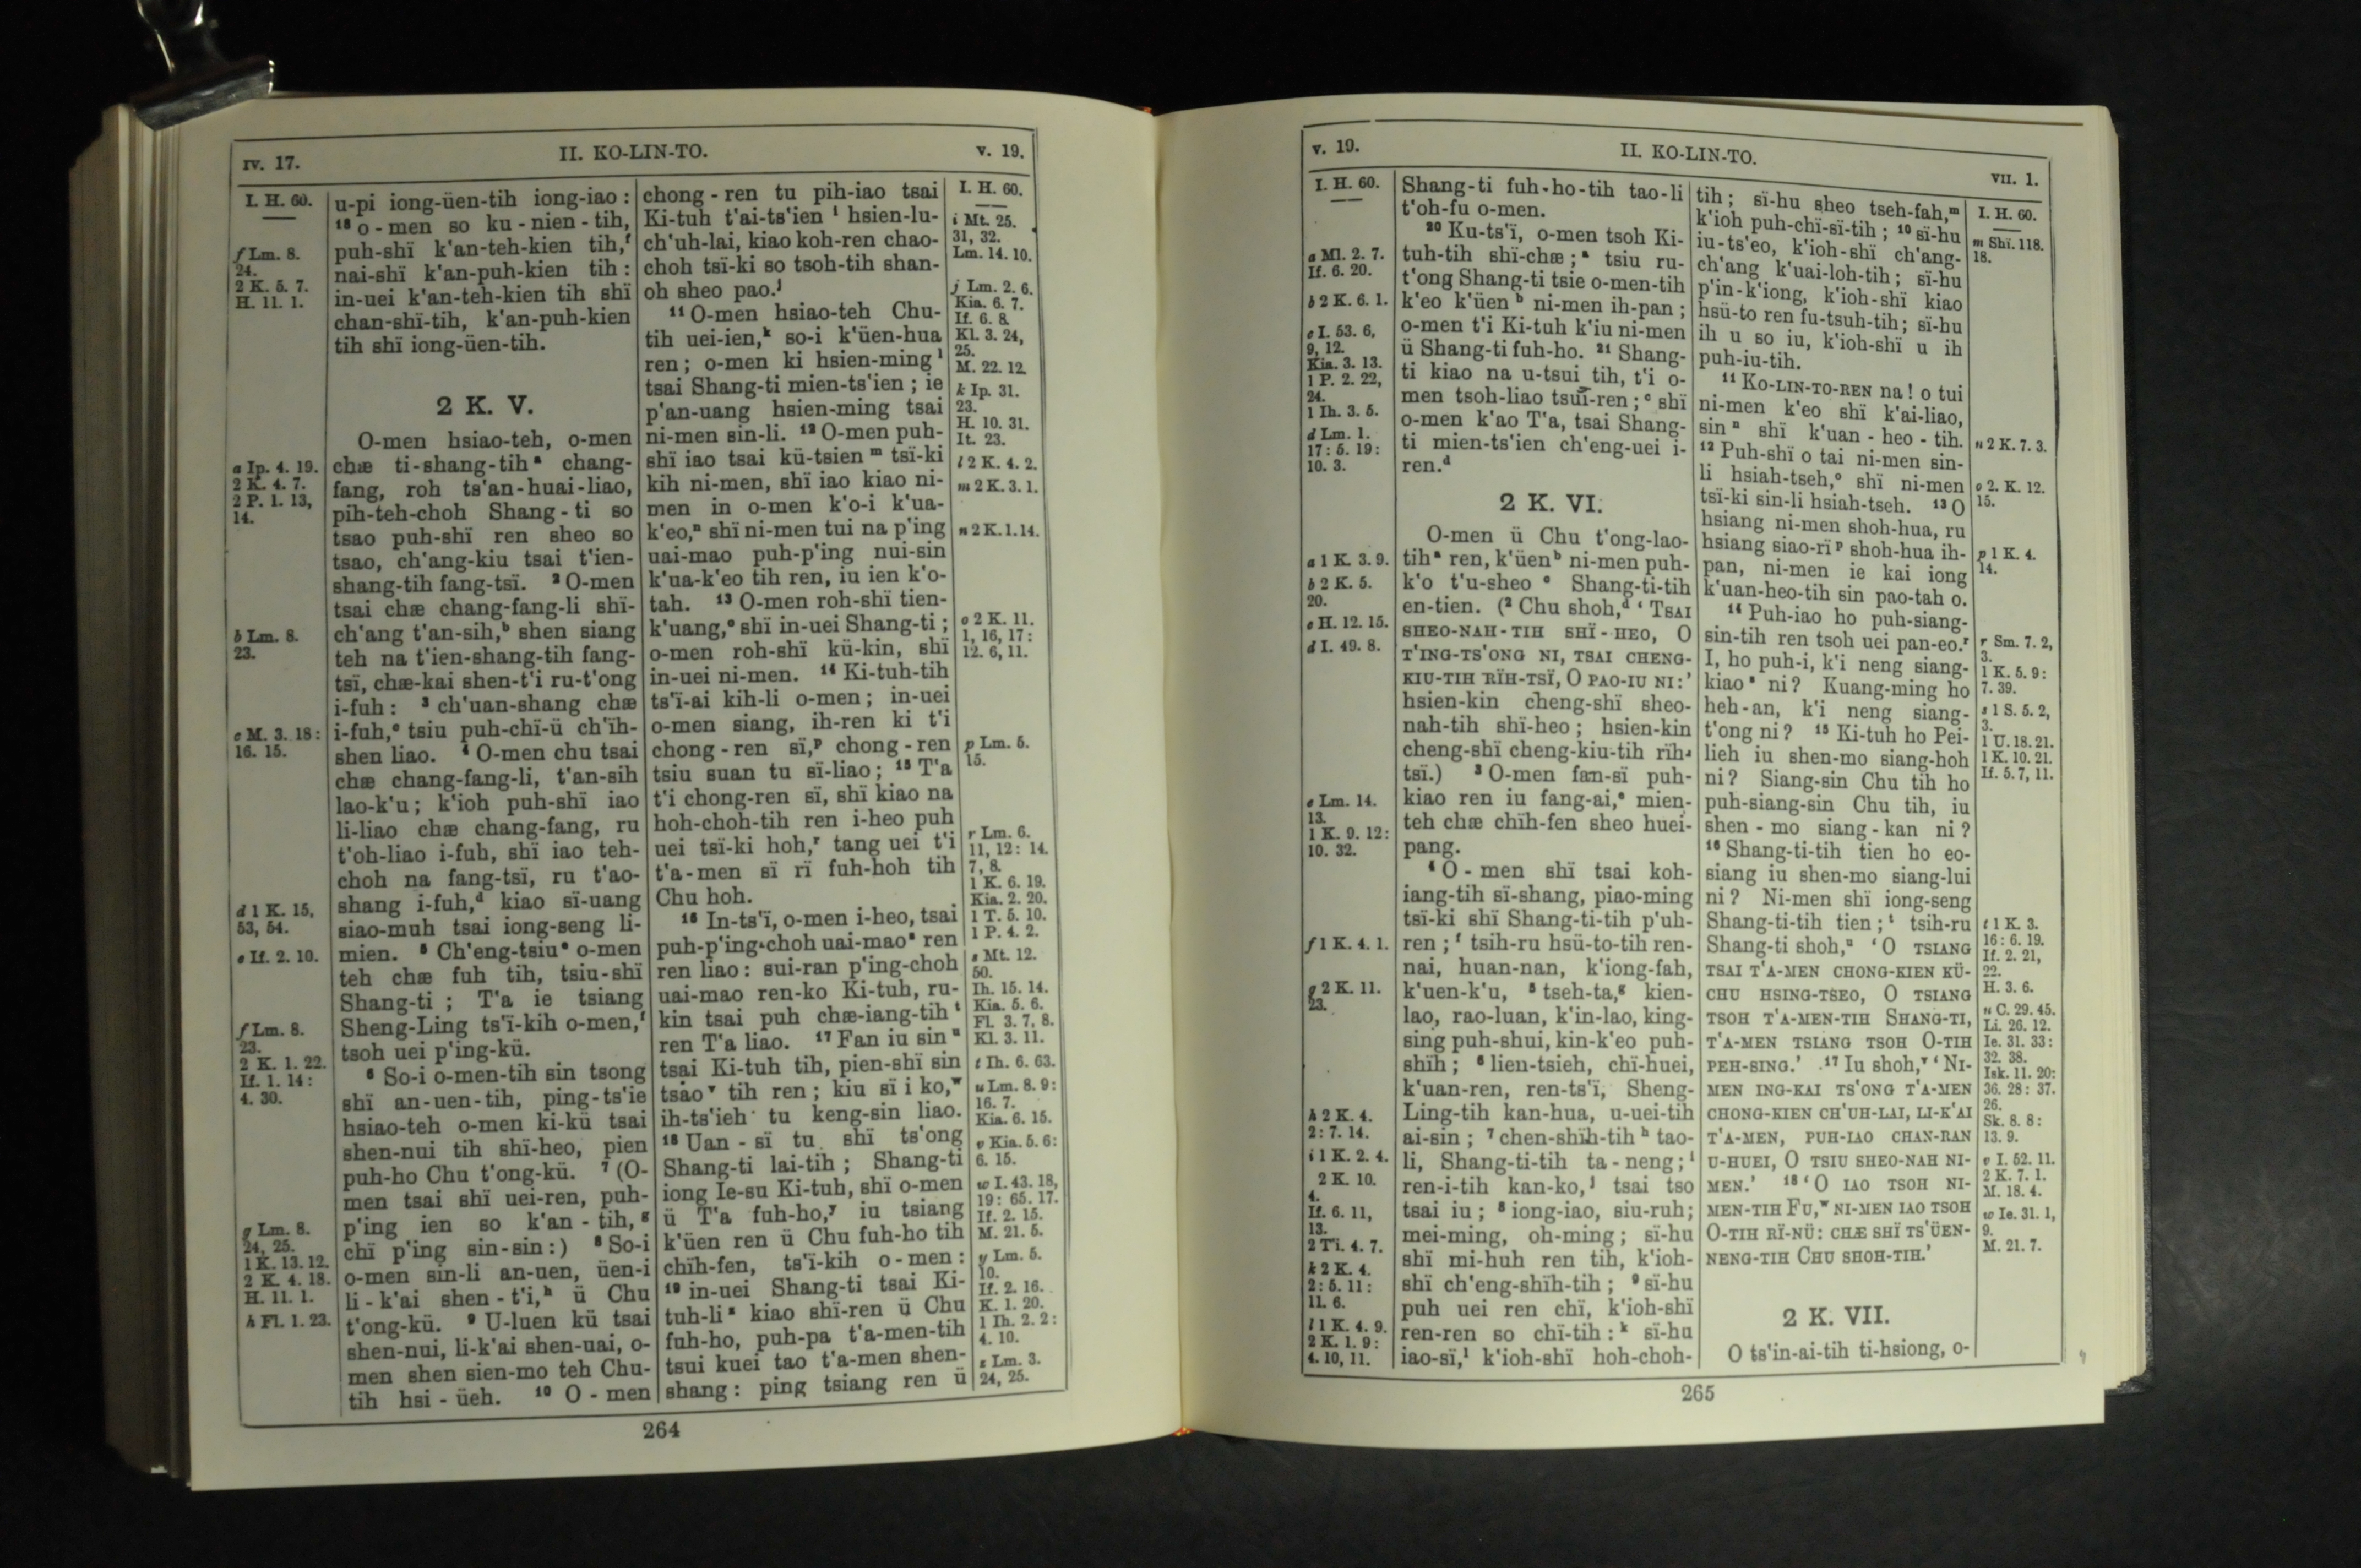 IV. 17.
II. KO-LIN-TO.
V. 19.
I. H. 60.
f Lm. 8.
24.
2 K. 5. 7.
H. 11. 1.
a Ip. 4. 19.
2 K. 4. 7.
2 P. 1. 13,
14.
b Lm. 8.
23.
c M. 3. 18:
16. 15.
d 1 K. 15,
53, 54.
e If. 2. 10.
f Lm. 8.
23.
2 K. 1. 22.
If. 1. 14:
4. 30.
g Lm. 8.
24, 25.
1 K. 13. 12.
2 K. 4. 18.
H. 11. 1.
h Fl. 1. 23.
u-pi iong-üen-tih iong-iao:
18 o-men so ku-nien-tih,
puh-shï k'an-teh-kien tih,f
nai-shï k'an-puh-kien tih:
in-uei k'an-teh-kien tih shï
chan-shï-tih, k'an-puh-kien
tih shï iong-üen-tih.
2 K. V.
O-men hsiao-teh, o-men
chæ ti-shang-tiha chang-
fang, roh ts'an-huai-liao,
pih-teh-choh Shang-ti so
tsao puh-shï ren sheo so
tsao, ch'ang-kiu tsai t'ien-
shang-tih fang-tsï. 2 O-men
tsai chæ chang-fang-li shï-
ch'ang t'an-sih,b shen siang
teh na t'ien-shang-tih fang-
tsï, chæ-kai shen-t'i ru-t'ong
i-fuh: 3 ch'uan-shang chæ
i-fuh,c tsiu puh-chï-ü ch'ïh-
shen liao. 4 O-men chu tsai
chæ chang-fang-li, t'an-sih
lao-k'u; k'ioh puh-shï iao
li-liao chæ chang-fang, ru
t'oh-liao i-fuh, shï iao teh-
choh na fang-tsï, ru t'ao-
shang i-fuh,d kiao sï-uang
siao-muh tsai iong-seng li-
mien. 5 Ch'eng-tsiue o-men
teh chæ fuh tih, tsiu-shï
Shang-ti; T'a ie tsiang
Sheng-Ling ts'ï-kih o-men,f
tsoh uei p'ing-kü.
6 So-i o-men-tih sin tsong
shï an-uen-tih, ping-ts'ie
hsiao-teh o-men ki-kü tsai
shen-nui tih shï-heo, pien
puh-ho Chu t'ong-kü. 7 (O-
men tsai shï uei-ren, puh-
p'ing ien so k'an-tih,g
chï p'ing sin-sin:) 8 So-i
o-men sin-li an-uen, üen-i
li-k'ai shen-t'i,h ü Chu
t'ong-kü. 9 U-luen kü tsai
shen-nui, li-k'ai shen-uai, o-
men shen sien-mo teh Chu-
tih hsi-üeh. 10 O-men
chong-ren tu pih-iao tsai
Ki-tuh t'ai-ts'ien i hsien-lu-
ch'uh-lai, kiao koh-ren chao-
choh tsï-ki so tsoh-tih shan-
oh sheo pao.j
11 O-men hsiao-teh Chu-
tih uei-ien,k so-i k'üen-hua
ren; o-men ki hsien-ming l
tsai Shang-ti mien-ts'ien; ie
p'an-uang hsien-ming tsai
ni-men sin-li. 12 O-men puh-
shï iao tsai kü-tsien m tsï-ki
kih ni-men, shï iao kiao ni-
men in o-men k'o-i k'ua-
k'eo,n shï ni-men tui na p'ing
uai-mao puh-p'ing nui-sin
k'ua-k'eo tih ren, iu ien k'o-
tah. 13 O-men roh-shï tien-
k'uang,o shï in-uei Shang-ti;
o-men roh-shï kü-kin, shï
in-uei ni-men. 14 Ki-tuh-tih
ts'ï-ai kih-li o-men; in-uei
o-men siang, ih-ren ki t'i
chong-ren sï,p chong-ren
tsiu suan tu sï-liao; 15 T'a
t'i chong-ren sï, shï kiao na
hoh-choh-tih ren i-heo puh
uei tsï-ki hoh,r tang uei t'i
t'a-men sï rï fuh-hoh tih
Chu hoh.
16 In-ts'ï, o-men i-heo, tsai
puh-p'ing-choh uai-maos ren
ren liao: sui-ran p'ing-choh
uai-mao ren-ko Ki-tuh, ru-
kin tsai puh chæ-iang-tih t
ren T'a liao. 17 Fan iu sin u
tsai Ki-tuh tih, pien-shï sin
tsao v tih ren; kiu sï i ko,w
ih-ts'ieh tu keng-sin liao.
18 Uan-sï tu shï ts'ong
Shang-ti lai-tih; Shang-ti
iong Ie-su Ki-tuh, shï o-men
ü T'a fuh-ho,y iu tsiang
k'üen ren ü Chu fuh-ho tih
chïh-fen, ts'ï-kih o-men:
19 in-uei Shang-ti tsai Ki-
tuh-li z kiao shï-ren ü Chu
fuh-ho, puh-pa t'a-men-tih
tsui kuei tao t'a-men shen-
shang: ping tsiang ren ü
I. H. 60.
i Mt. 25.
31, 32.
Lm. 14. 10.
j Lm. 2. 6.
Kia. 6. 7.
If. 6. 8.
Kl. 3. 24,
25.
M. 22. 12.
k Ip. 31.
23.
H. 10. 31.
It. 23.
l 2 K. 4. 2.
m 2 K. 3. 1.
n 2 K. 1. 14.
o 2 K. 11.
1, 16, 17:
12. 6, 11.
p Lm. 5.
15.
r Lm. 6.
11, 12: 14.
7, 8.
1 K. 6. 19.
Kia. 2. 20.
1 T. 5. 10.
1 P. 4. 2.
s Mt. 12.
50.
Ih. 15. 14.
Kia. 5. 6.
Fl. 3. 7, 8.
Kl. 3. 11.
t Ih. 6. 63.
u Lm. 8. 9:
16. 7.
Kia. 6. 15.
v Kia. 5. 6:
6. 15.
w I. 43. 18,
19: 65. 17.
If. 2. 15.
M. 21. 5.
y Lm. 5.
10.
If. 2. 16.
K. 1. 20.
1 Ih. 2. 2:
4. 10.
z Lm. 3.
24, 25.
264
V. 19.
II. KO-LIN-TO.
VII. 1.
I. H. 60.
a Ml. 2. 7.
If. 6. 20.
b 2 K. 6. 1.
c I. 53. 6,
9, 12.
Kia. 3. 13.
1 P. 2. 22,
24.
1 Ih. 3. 5.
d Lm. 1.
17: 5. 19:
10. 3.
a 1 K. 3. 9.
b 2 K. 5.
20.
c H. 12. 15.
d I. 49. 8.
e Lm. 14.
13.
1 K. 9. 12:
10. 32.
f 1 K. 4. 1.
g 2 K. 11.
23.
h 2 K. 4.
2: 7. 14.
i 1 K. 2. 4.
2 K. 10.
4.
If. 6. 11,
13.
2 Ti. 4. 7.
k 2 K. 4.
2: 5. 11:
11. 6.
l 1 K. 4. 9.
2 K. 1. 9:
4. 10, 11.
Shang-ti fuh-ho-tih tao-li
t'oh-fu o-men.
20 Ku-ts'ï, o-men tsoh Ki-
tuh-tih shï-chæ;a tsiu ru-
t'ong Shang-ti tsie o-men-tih
k'eo k'üen b ni-men ih-pan;
o-men t'i Ki-tuh k'iu ni-men
ü Shang-ti fuh-ho. 21 Shang-
ti kiao na u-tsui tih, t'i o-
men tsoh-liao tsui-ren;c shï
o-men k'ao T'a, tsai Shang-
ti mien-ts'ien ch'eng-uei i-
ren.d
2 K. VI.
O-men ü Chu t'ong-lao-
tiha ren, k'üenb ni-men puh-
k'o t'u-sheo c Shang-ti-tih
en-tien. (2 Chu shoh,d ‘TSAI
SHEO-NAH-TIH SHÏ-HEO, O
T'ING-TS'ONG NI, TSAI CHENG-
KIU-TIH RÏH-TSÏ, O PAO-IU NI:’
hsien-kin cheng-shï sheo-
nah-tih shï-heo; hsien-kin
cheng-shï cheng-kiu-tih rïh-
tsï.) 3 O-men fan-sï puh-
kiao ren iu fang-ai,e mien-
teh chæ chïh-fen sheo huei-
pang.
4 O-men shï tsai koh-
iang-tih sï-shang, piao-ming
tsï-ki shï Shang-ti-tih p'uh-
ren;f tsih-ru hsü-to-tih ren-
nai, huan-nan, k'iong-fah,
k'uen-k'u, 5 tseh-ta,g kien-
lao, rao-luan, k'in-lao, king-
sing puh-shui, kin-k'eo puh-
shïh; 6 lien-tsieh, chï-huei,
k'uan-ren, ren-ts'ï, Sheng-
Ling-tih kan-hua, u-uei-tih
ai-sin; 7 chen-shïh-tih h tao-
li, Shang-ti-tih ta-neng;i
ren-i-tih kan-ko,j tsai tso
tsai iu; 8 iong-iao, siu-ruh;
mei-ming, oh-ming; sï-hu
shï mi-huh ren tih, k'ioh-
shï ch'eng-shïh-tih; 9 sï-hu
puh uei ren chï, k'ioh-shï
ren-ren so chï-tih:k sï-hu
iao-sï,l k'ioh-shï hoh-choh-
tih; sï-hu sheo tseh-fah,m
k'ioh puh-chï-sï-tih; 10 sï-hu
iu-ts'eo, k'ioh-shï ch'ang-
ch'ang k'uai-loh-tih; sï-hu
p'in-k'iong, k'ioh-shï kiao
hsü-to ren fu-tsuh-tih; sï-hu
ih u so iu, k'ioh-shï u ih
puh-iu-tih.
11 KO-LIN-TO-REN na! o tui
ni-men k'eo shï k'ai-liao,
sin n shï k'uan-heo-tih.
12 Puh-shï o tai ni-men sin-
li hsiah-tseh,o shï ni-men
tsï-ki sin-li hsiah-tseh. 13 O
hsiang ni-men shoh-hua, ru
hsiang siao-rï p shoh-hua ih-
pan, ni-men ie kai iong
k'uan-heo-tih sin pao-tah o.
14 Puh-iao ho puh-siang-
sin-tih ren tsoh uei pan-eo.r
I, ho puh-i, k'i neng siang-
kiaos ni? Kuang-ming ho
heh-an, k'i neng siang-
t'ong ni? 15 Ki-tuh ho Pei-
lieh iu shen-mo siang-hoh
ni? Siang-sin Chu tih ho
puh-siang-sin Chu tih, iu
shen-mo siang-kan ni?
16 Shang-ti-tih tien ho eo-
siang iu shen-mo siang-lui
ni? Ni-men shï iong-seng
Shang-ti-tih tien;t tsih-ru
Shang-ti shoh,u ‘O TSIANG
TSAI T'A-MEN CHONG-KIEN KÜ-
CHU HSING-TSEO, O TSIANG
TSOH T'A-MEN-TIH SHANG-TI,
T'A-MEN TSIANG TSOH O-TIH
PEH-SING.’ 17 Iu shoh,v ‘NI-
MEN ING-KAI TS'ONG T'A-MEN
CHONG-KIEN CH'UH-LAI, LI-K'AI
T'A-MEN, PUH-IAO CHAN-RAN
U-HUEI, O TSIU SHEO-NAH NI-
MEN.’ 18 ‘O IAO TSOH NI-
MEN-TIH FU,w NI-MEN IAO TSOH
O-TIH RÏ-NÜ: CHÆ SHÏ TS'ÜEN-
NENG-TIH CHU SHOH-TIH.’
2 K. VII.
O ts'in-ai-tih ti-hsiong, o-
I. H. 60.
m Shï. 118.
18.
n 2 K. 7. 3.
o 2. K. 12.
15.
p 1 K. 4.
14.
r Sm. 7. 2,
3.
1 K. 5. 9:
7. 39.
s 1 S. 5. 2,
3.
1 U. 18. 21.
1 K. 10. 21.
If. 5. 7, 11.
t 1 K. 3.
16: 6. 19.
If. 2. 21,
22.
H. 3. 6.
u C. 29. 45.
Li. 26. 12.
Ie. 31. 33:
32. 38.
Isk. 11. 20:
36. 28: 37.
26.
Sk. 8. 8:
13. 9.
v I. 52. 11.
2 K. 7. 1.
M. 18. 4.
w Ie. 31. 1,
9.
M. 21. 7.
265